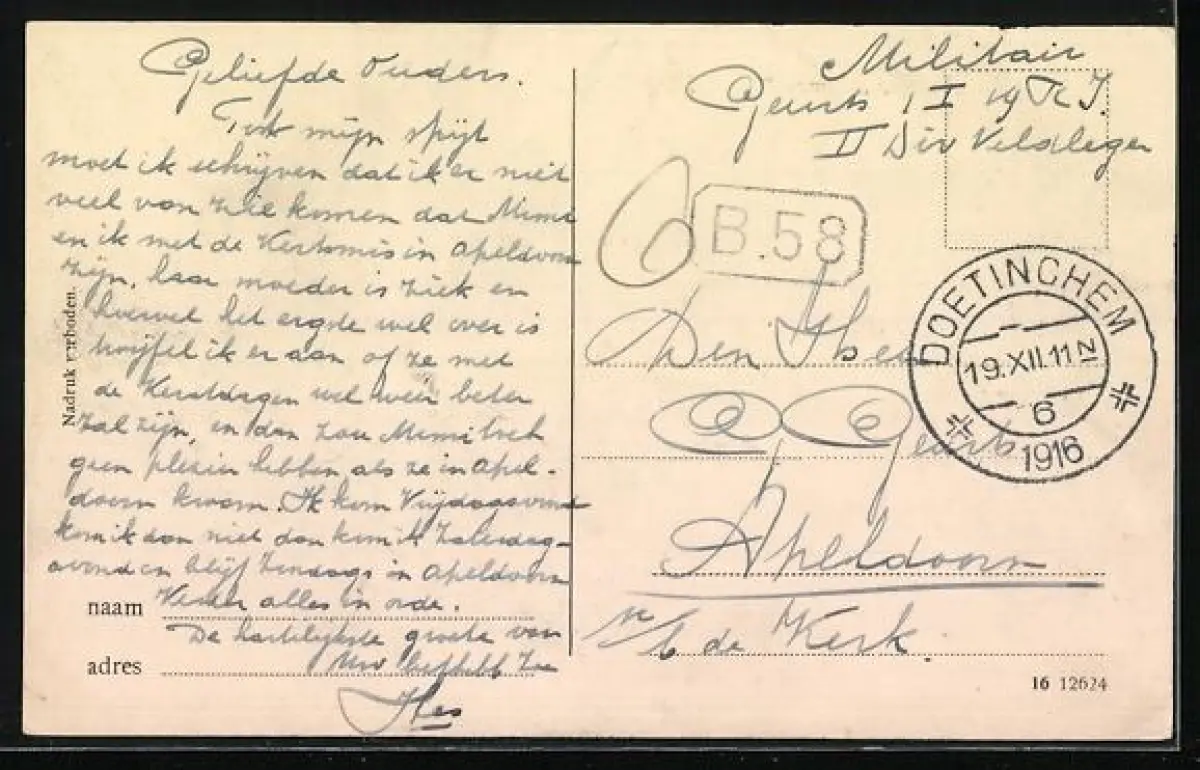 Geliefde Ouders.
Tot mijn spijt
moet ik schrijven dat ik er niet
veel van zie komen dat Mimi
en ik met de Kertsmis in Apeldoorn
zijn, haar moeder is ziek en
hoewel het ergste wel over is
twijfel ik er aan of ze met
de Kerstdagen wel weer beter
zal zijn, en dan zou Mimi toch
geen plezier hebben als ze in Apel-
doorn kwam. Ik kom Vrijdagavond
kom ik dan niet dan kom ik Zaterdag-
avond en blijf Zondags in Apeldoorn
Verder alles in orde.
De hartelijkste groete van
Uw liefhebb
naam
adres
Nadruk verboden.
Militair
Geurts 1 I 19 R.I.
II Div Veldleger
6
B.58
DOETINCHEM
19.XII.11 N
6
1916
Den Heer
Geurts
Apeldoorn
n/b de Kerk.
16 12624